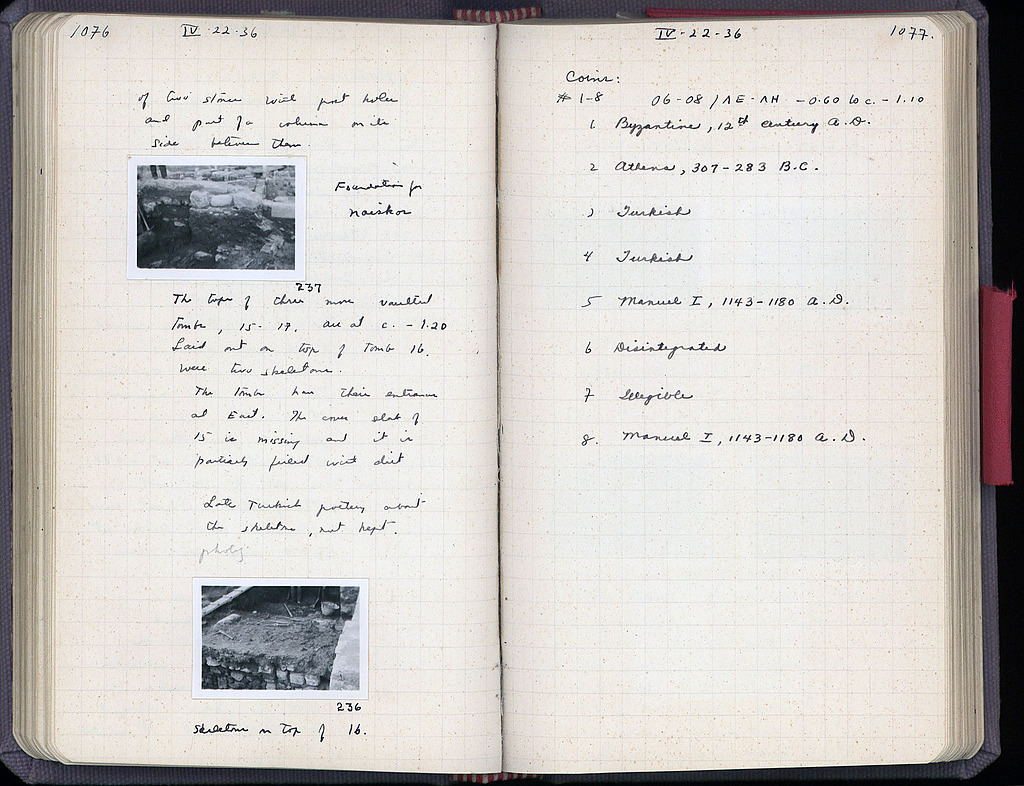 1076
IV-22-36
of two stones with post holes
and part of a column on its
side between them.
Foundation for
naiskos
237
The tops of three more vaulted
tombs, 15-17, are at c. -1.20
Laid out on top of Tomb 16.
were two skeletons.
The tombs have their entrance
at East. The cover slab of
15 is missing and it is
partially filled with dirt
Late Turkish pottery about
the skeletons, not kept.
236
Skeletons on top of 16.
IV-22-36
1077.
Coins:
# 1-8 06-08/ΛE-ΛH -0.60 to c. -1.10
1 Byzantine, 12th century A.D.
2 Athens, 307-283 B.C.
3 Turkish
4 Turkish
5 Manuel I, 1143-1180 A.D.
6 Disintegrated
7 Illegible
8. Manuel I, 1143-1180 A.D.